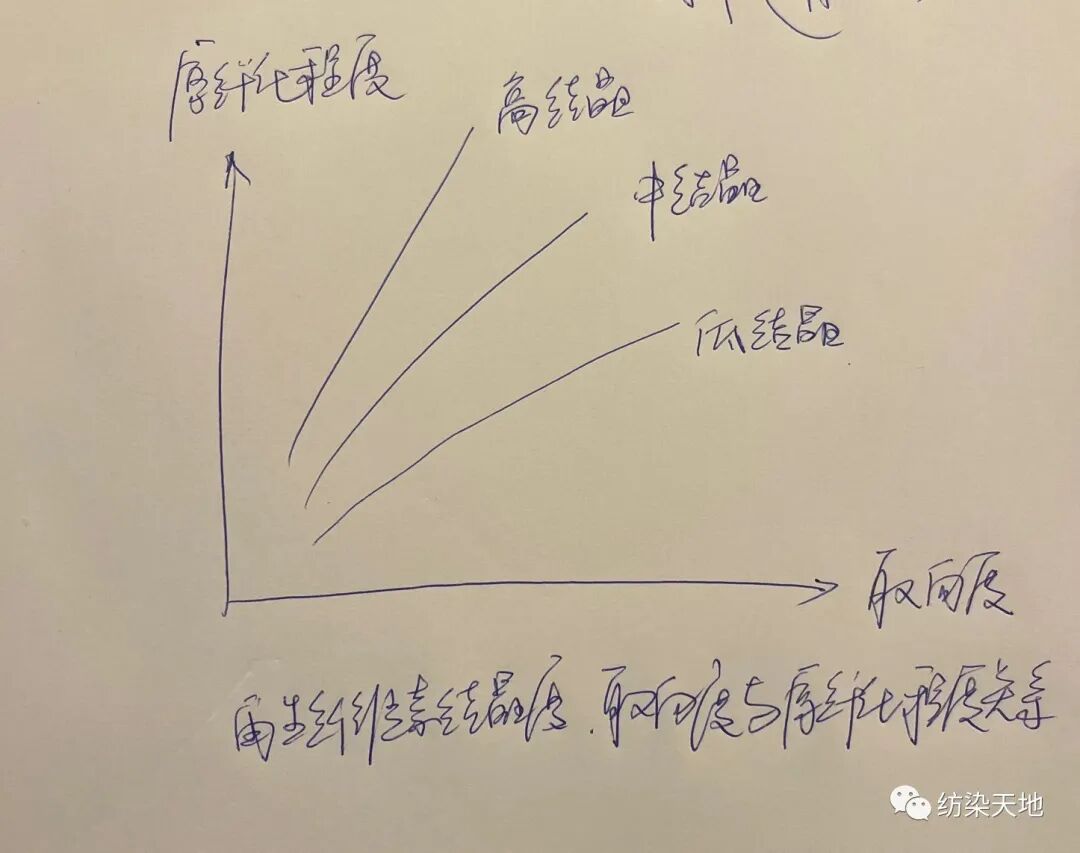 原纤化程度
高结晶
中结晶
低结晶
取向度
再生纤维素结晶度、取向度与原纤化程度关系
纺染天地